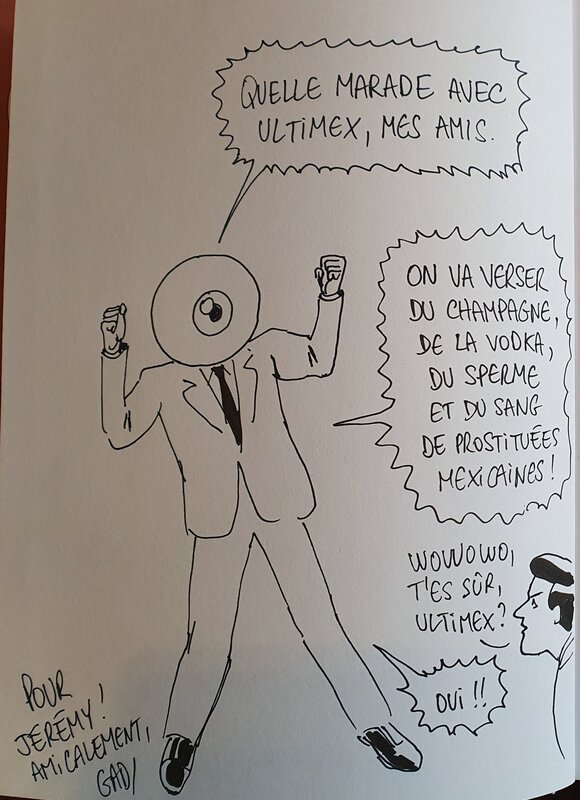 QUELLE MARADE AVEC
ULTIMEX, MES AMIS.
ON VA VERSER
DU CHAMPAGNE,
DE LA VODKA,
DU SPERME
ET DU SANG
DE PROSTITUÉES
MEXICAINES !
WOWOWO,
T'ES SÛR,
ULTIMEX ?
OUI !!
POUR
JÉRÉMY !
AMICALEMENT,
GAD/